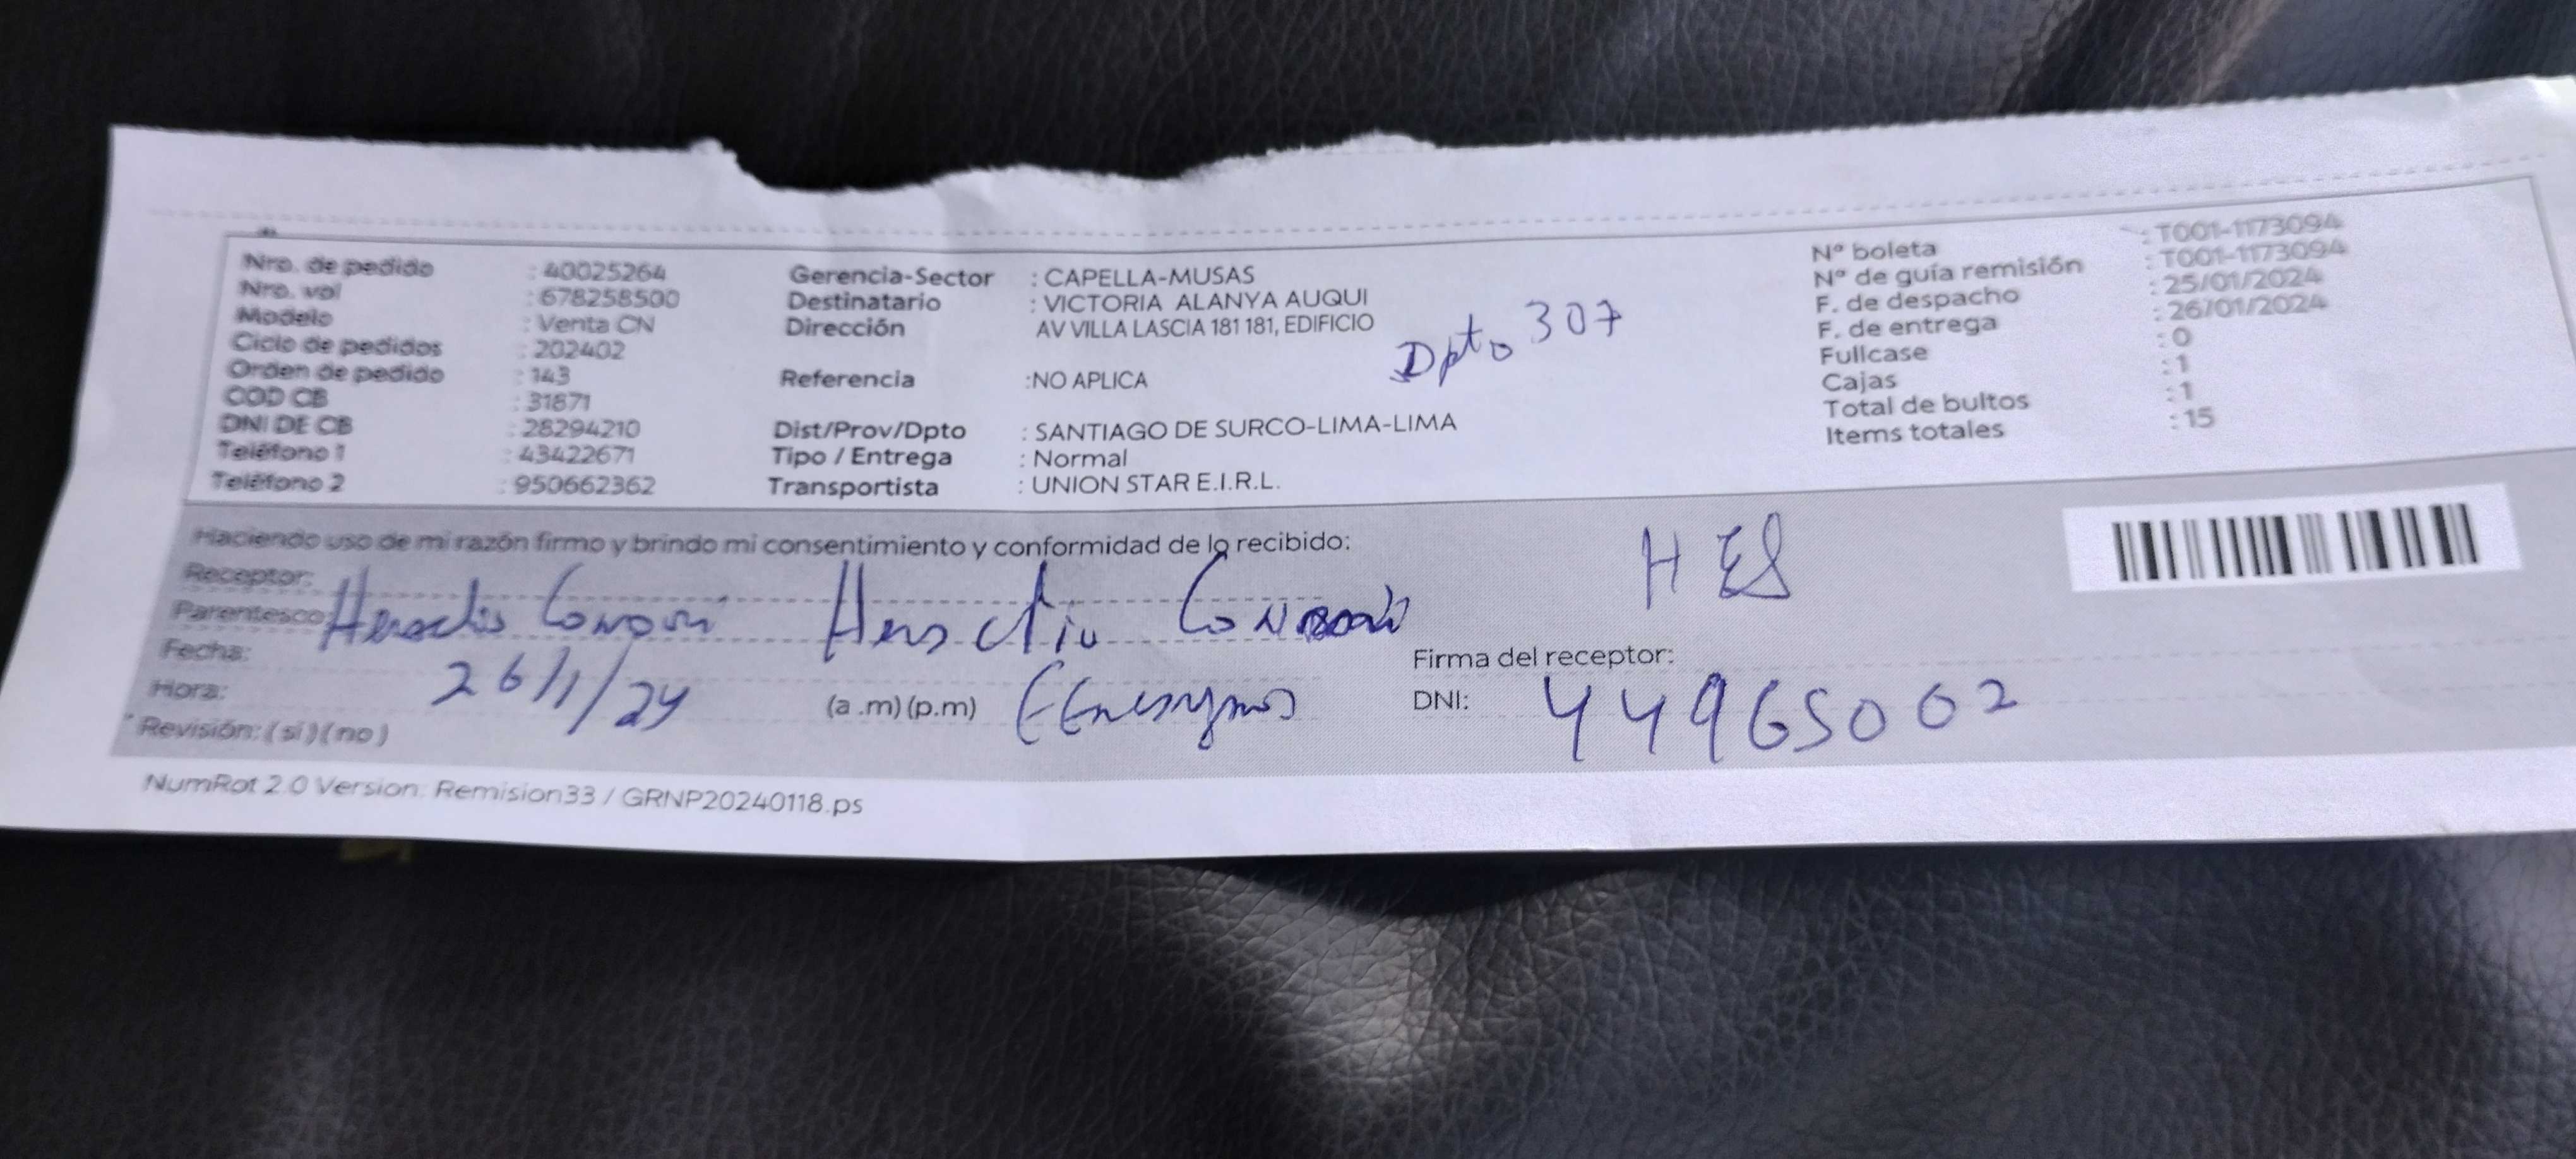 Nro. de pedido : 40025264
Nro. vol : 678258500
Modelo : Venta CN
Ciclo de pedidos : 202402
Orden de pedido : 143
COD CB : 31871
DNI DE CB : 28294210
Teléfono 1 : 43422671
Teléfono 2 : 950662362
Gerencia-Sector : CAPELLA-MUSAS
Destinatario : VICTORIA ALANYA AUQUI
Dirección AV VILLA LASCIA 181 181, EDIFICIO
Dpto 307
Referencia :NO APLICA
Dist/Prov/Dpto : SANTIAGO DE SURCO-LIMA-LIMA
Tipo / Entrega : Normal
Transportista : UNION STAR E.I.R.L.
N° boleta : T001-1173094
N° de guía remisión : T001-1173094
F. de despacho : 25/01/2024
F. de entrega : 26/01/2024
Fullcase : 0
Cajas : 1
Total de bultos : 1
Items totales : 15
Haciendo uso de mi razón firmo y brindo mi consentimiento y conformidad de lo recibido:
Receptor:
Parentesco
Fecha: 26/1/24
Hora: (a .m) (p.m)
* Revisión: ( si ) ( no )
Firma del receptor:
DNI: 44965002
NumRot 2.0 Version: Remision33 / GRNP20240118.ps